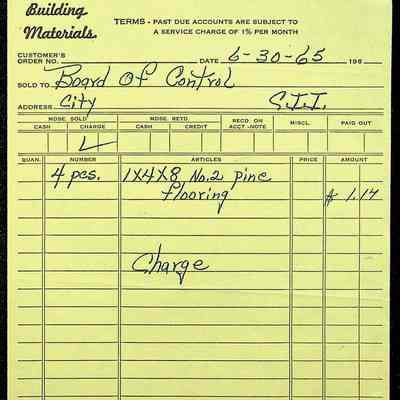 Building
Materials.
TERMS - PAST DUE ACCOUNTS ARE SUBJECT TO
A SERVICE CHARGE OF 1% PER MONTH
CUSTOMER'S
ORDER NO. DATE 6-30-65 196
SOLD TO Board Of Control
ADDRESS City S.I.I.
MDSE. SOLD MDSE. RETD. RECD. ON ACCT.-NOTE MISCL. PAID OUT
CASH CHARGE CASH CREDIT
QUAN. NUMBER ARTICLES PRICE AMOUNT
4 pcs. 1X4X8 No.2 pine
flooring $ 1.14
Charge